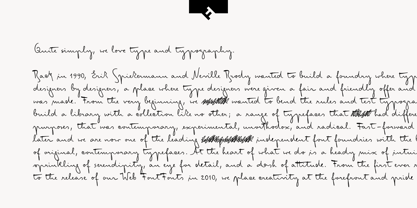 Quite simply, we love type and typography.
Back in 1990, Erik Spiekermann and Neville Brody wanted to build a foundry where type
designers by designers, a place where type designers were given a fair and friendly offer and
was made. From the very beginning, we wanted to bend the rules and test typogra
build a library with a collection like no other; a range of typefaces that had differen
purposes, that was contemporary, experimental, unorthodox, and radical. Fast-forward
later and we are now one of the leading independent font foundries with the
of original, contemporary typefaces. At the heart of what we do is a heady mix of inten
sprinkling of serendipity, an eye for detail, and a dash of attitude. From the first ever
to the release of our Web FontFonts in 2010, we place creativity at the forefront and